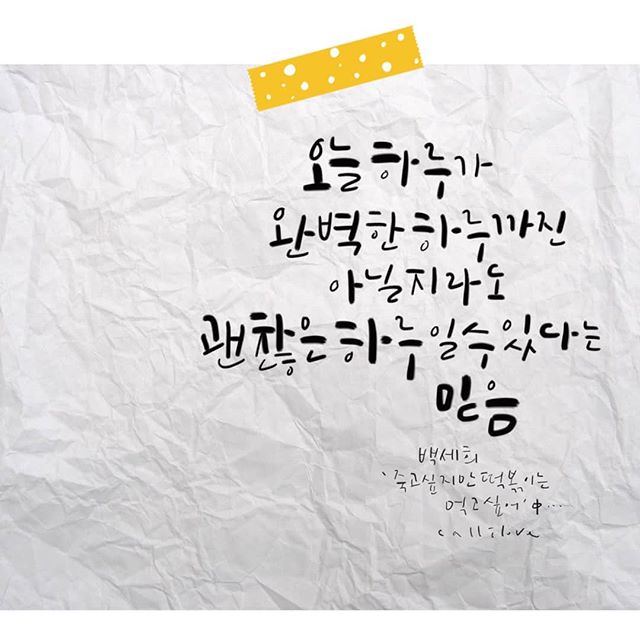 오늘 하루가
완벽한 하루까진
아닐지라도
괜찮은 하루일 수 있다는
믿음
백세희
'죽고싶지만 떡볶이는
먹고싶어' 中...